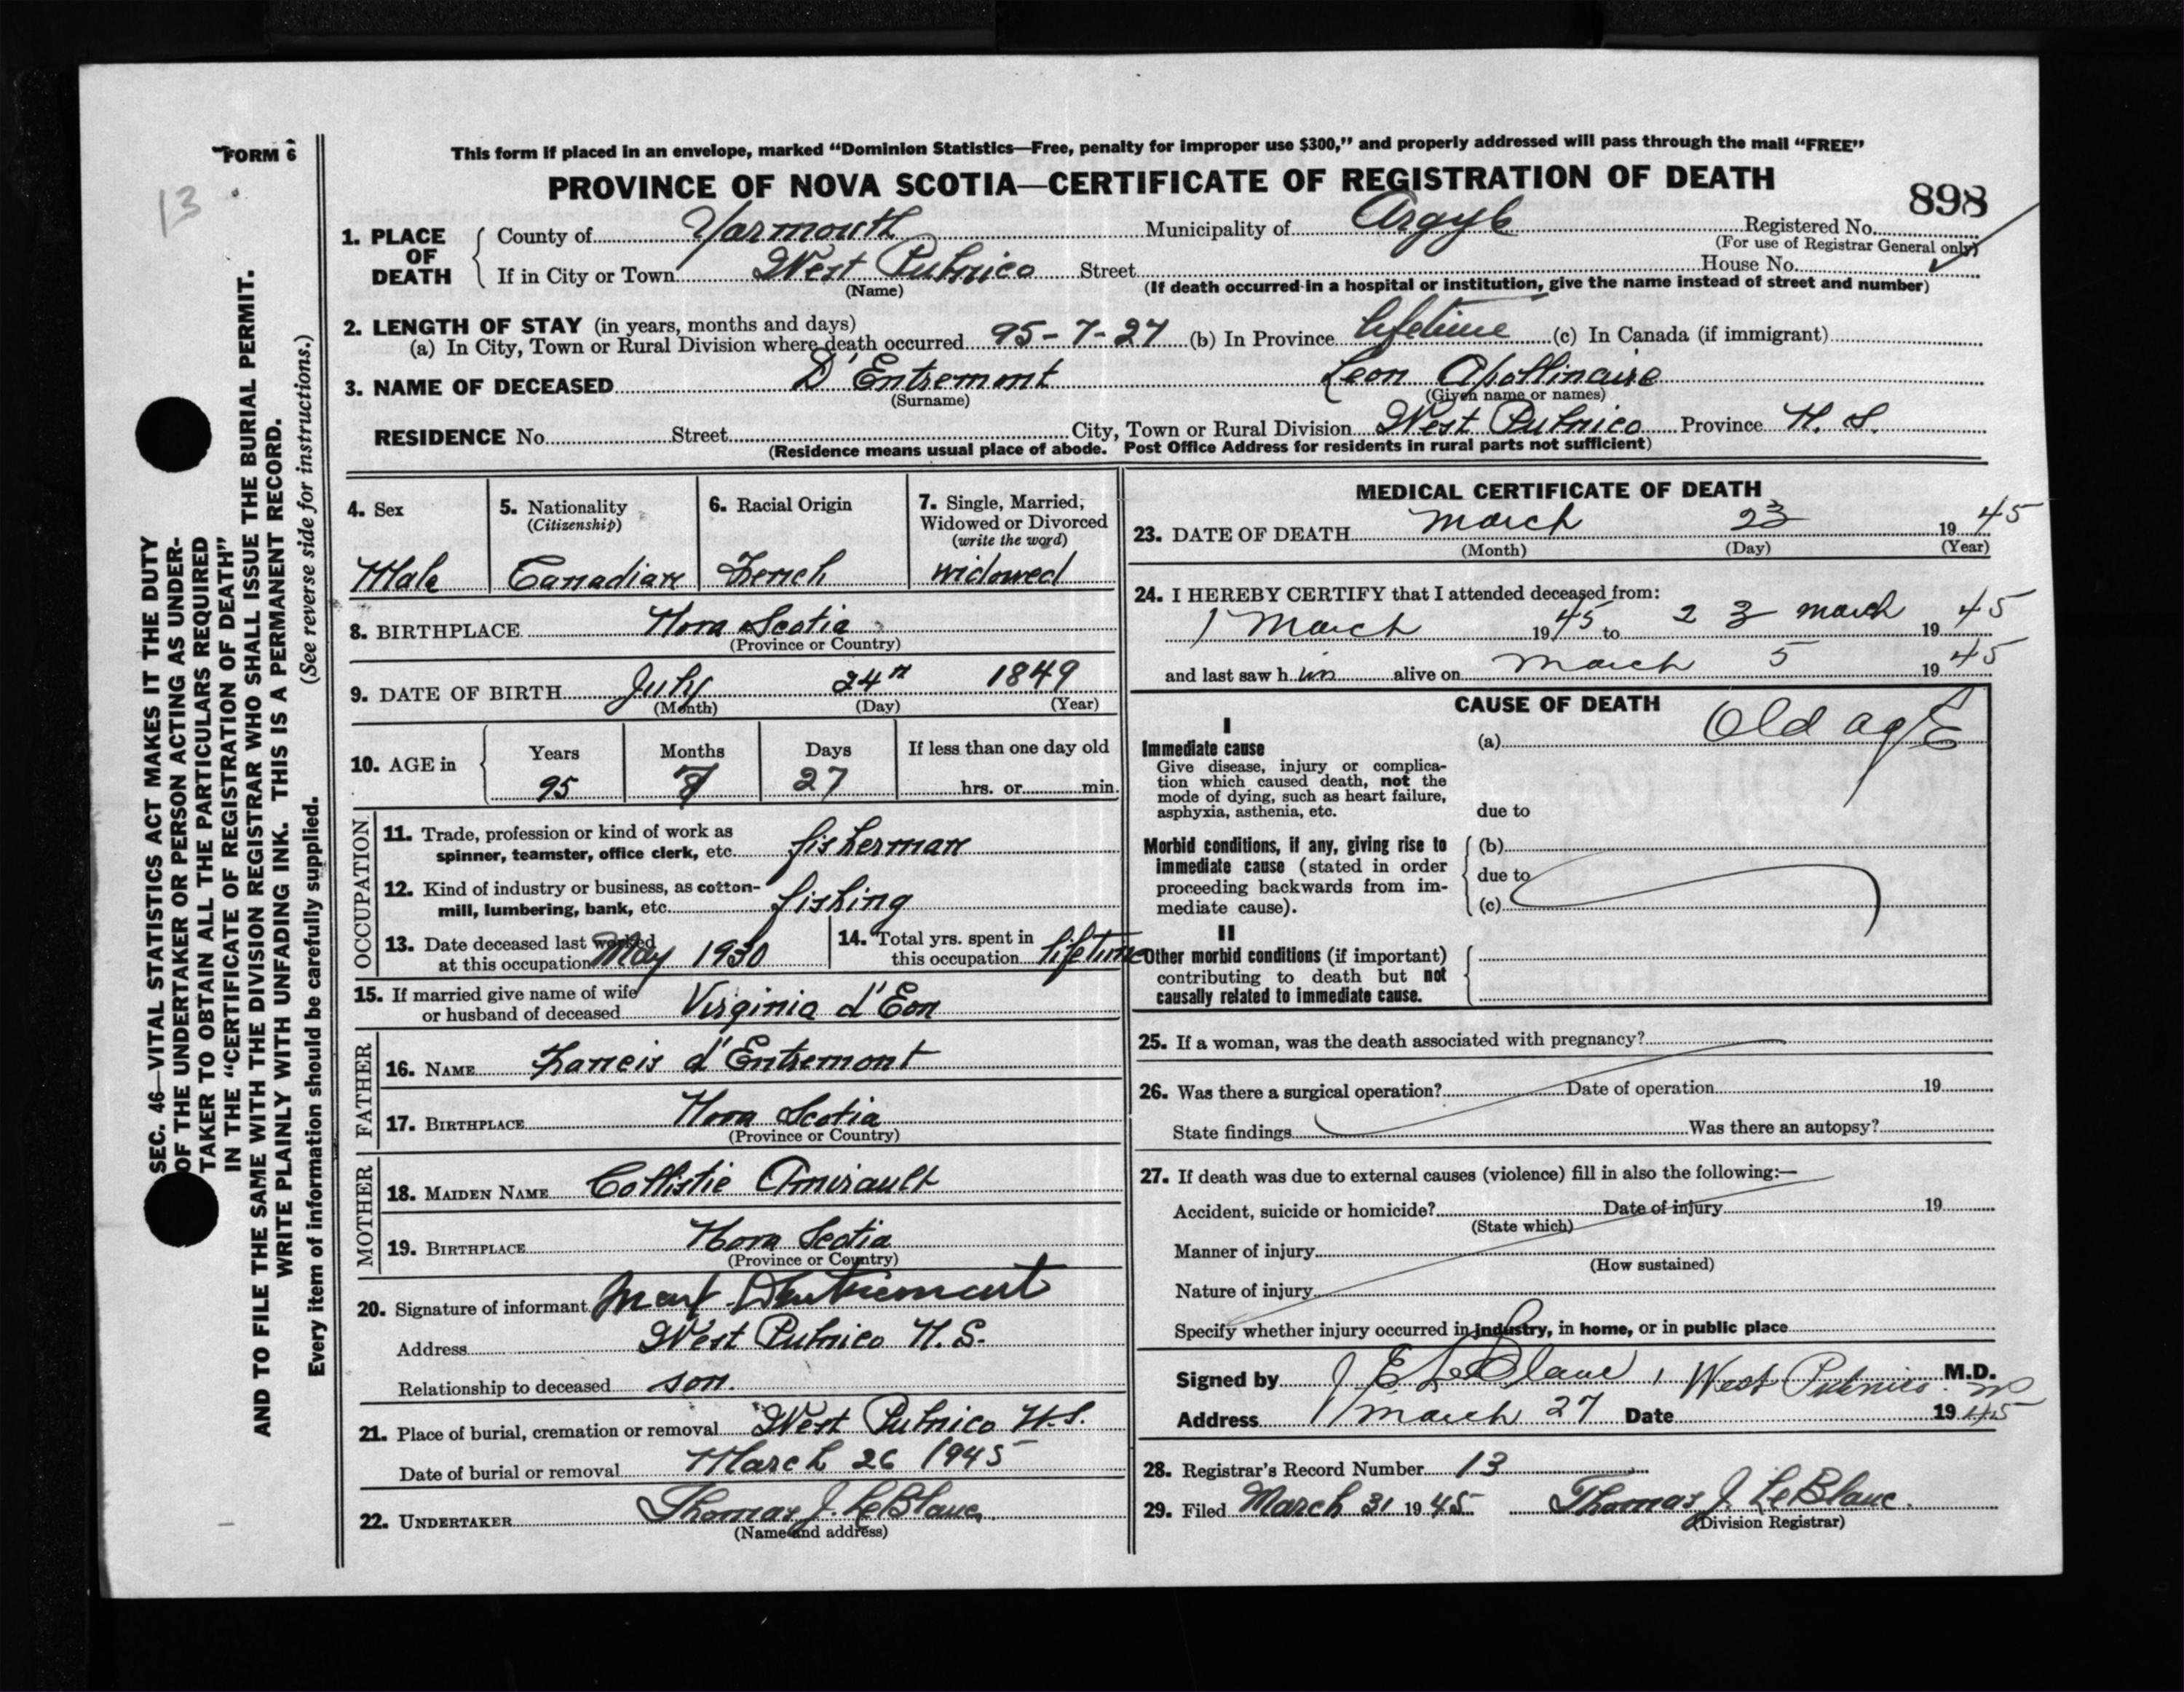 FORM 6
13
This form if placed in an envelope, marked “Dominion Statistics—Free, penalty for improper use $300,” and properly addressed will pass through the mail “FREE”
PROVINCE OF NOVA SCOTIA—CERTIFICATE OF REGISTRATION OF DEATH
898
1. PLACE OF DEATH County of Yarmouth Municipality of Argyle Registered No.
(For use of Registrar General only)
If in City or Town West Pubnico Street House No.
(Name) (If death occurred in a hospital or institution, give the name instead of street and number)
2. LENGTH OF STAY (in years, months and days)
(a) In City, Town or Rural Division where death occurred 95-7-27 (b) In Province lifetime (c) In Canada (if immigrant)
3. NAME OF DECEASED D'Entremont Leon Apollinaire
(Surname) (Given name or names)
RESIDENCE No. Street City, Town or Rural Division West Pubnico Province N. S.
(Residence means usual place of abode. Post Office Address for residents in rural parts not sufficient)
4. Sex Male
5. Nationality (Citizenship) Canadian
6. Racial Origin French
7. Single, Married, Widowed or Divorced (write the word) widowed
8. BIRTHPLACE Nova Scotia
(Province or Country)
9. DATE OF BIRTH July 24th 1849
(Month) (Day) (Year)
10. AGE in Years Months Days If less than one day old
95 7 27 hrs. or min.
OCCUPATION
11. Trade, profession or kind of work as
spinner, teamster, office clerk, etc. fisherman
12. Kind of industry or business, as cotton-
mill, lumbering, bank, etc. fishing
13. Date deceased last worked
at this occupation May 1930
14. Total yrs. spent in
this occupation lifetime
15. If married give name of wife
or husband of deceased Virginia d'Eon
FATHER
16. NAME Francis d'Entremont
17. BIRTHPLACE Nova Scotia
(Province or Country)
MOTHER
18. MAIDEN NAME Collistie Amirault
19. BIRTHPLACE Nova Scotia
(Province or Country)
20. Signature of informant D'entremont
Address West Pubnico N. S.
Relationship to deceased son.
21. Place of burial, cremation or removal West Pubnico N.S.
Date of burial or removal March 26 1945
22. UNDERTAKER Thomas J. LeBlanc
(Name and address)
MEDICAL CERTIFICATE OF DEATH
23. DATE OF DEATH March 23 1945
(Month) (Day) (Year)
24. I HEREBY CERTIFY that I attended deceased from:
1 March 1945 to 23 march 1945
and last saw h im alive on March 5 1945
CAUSE OF DEATH
I
Immediate cause
Give disease, injury or complica-
tion which caused death, not the
mode of dying, such as heart failure,
asphyxia, asthenia, etc.
(a) Old agE
due to
Morbid conditions, if any, giving rise to
immediate cause (stated in order
proceeding backwards from im-
mediate cause).
(b)
due to
(c)
II
Other morbid conditions (if important)
contributing to death but not
causally related to immediate cause.
25. If a woman, was the death associated with pregnancy?
26. Was there a surgical operation? Date of operation 19
State findings Was there an autopsy?
27. If death was due to external causes (violence) fill in also the following:—
Accident, suicide or homicide? Date of injury 19
(State which)
Manner of injury
(How sustained)
Nature of injury
Specify whether injury occurred in industry, in home, or in public place
Signed by J E LeBlanc, West Pubnico M.D.
Address March 27 Date 1945
28. Registrar's Record Number 13
29. Filed March 31 1945 Thomas J. LeBlanc.
(Division Registrar)
SEC. 46—VITAL STATISTICS ACT MAKES IT THE DUTY
OF THE UNDERTAKER OR PERSON ACTING AS UNDER-
TAKER TO OBTAIN ALL THE PARTICULARS REQUIRED
IN THE “CERTIFICATE OF REGISTRATION OF DEATH”
AND TO FILE THE SAME WITH THE DIVISION REGISTRAR WHO SHALL ISSUE THE BURIAL PERMIT.
WRITE PLAINLY WITH UNFADING INK. THIS IS A PERMANENT RECORD.
Every item of information should be carefully supplied. (See reverse side for instructions.)